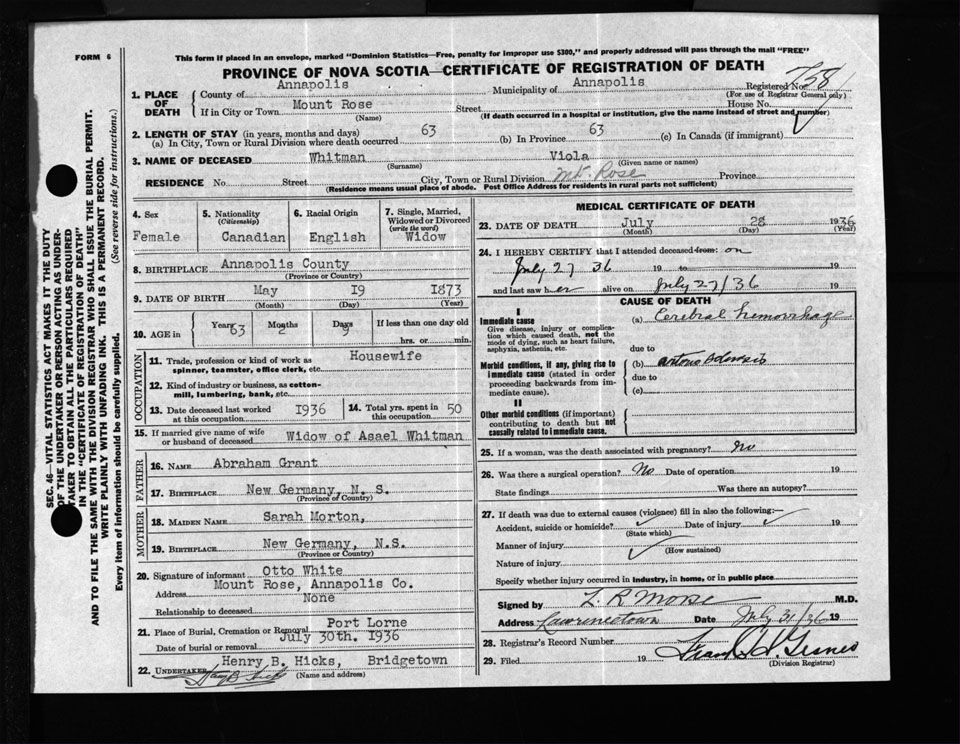 FORM 6
This form if placed in an envelope, marked "Dominion Statistics—Free, penalty for improper use $300," and properly addressed will pass through the mail "FREE"
PROVINCE OF NOVA SCOTIA—CERTIFICATE OF REGISTRATION OF DEATH
1. PLACE OF DEATH
County of Annapolis Municipality of Annapolis Registered No. 758
(For use of Registrar General only)
If in City or Town Mount Rose Street House No.
(Name) (If death occurred in a hospital or institution, give the name instead of street and number)
2. LENGTH OF STAY (in years, months and days)
(a) In City, Town or Rural Division where death occurred 63 (b) In Province 63 (c) In Canada (if immigrant)
3. NAME OF DECEASED Whitman Viola
(Surname) (Given name or names)
RESIDENCE No. Street City, Town or Rural Division Mt. Rose Province
(Residence means usual place of abode. Post Office Address for residents in rural parts not sufficient)
4. Sex Female
5. Nationality (Citizenship) Canadian
6. Racial Origin English
7. Single, Married, Widowed or Divorced (write the word) Widow
8. BIRTHPLACE Annapolis County
(Province or Country)
9. DATE OF BIRTH May 19 1873
(Month) (Day) (Year)
10. AGE in Years 63 Months 2 Days 9 If less than one day old
hrs. or min.
OCCUPATION
11. Trade, profession or kind of work as spinner, teamster, office clerk, etc. Housewife
12. Kind of industry or business, as cotton-mill, lumbering, bank, etc.
13. Date deceased last worked at this occupation 1936
14. Total yrs. spent in this occupation 50
15. If married give name of wife or husband of deceased Widow of Asael Whitman
FATHER
16. NAME Abraham Grant
17. BIRTHPLACE New Germany, N. S.
(Province or Country)
MOTHER
18. MAIDEN NAME Sarah Morton,
19. BIRTHPLACE New Germany, N.S.
(Province or Country)
20. Signature of informant Otto White
Address Mount Rose, Annapolis Co.
Relationship to deceased None
21. Place of Burial, Cremation or Removal Port Lorne
Date of burial or removal July 30th. 1936
22. UNDERTAKER Henry B. Hicks, Bridgetown
(Name and address)
MEDICAL CERTIFICATE OF DEATH
23. DATE OF DEATH July 28 1936
(Month) (Day) (Year)
24. I HEREBY CERTIFY that I attended deceased from: on
July 27 36 19 to 19
and last saw her alive on July 27/36 19
CAUSE OF DEATH
I
Immediate cause
Give disease, injury or complication which caused death, not the mode of dying, such as heart failure, asphyxia, asthenia, etc.
(a) Cerebral hemorrhage
due to
Morbid conditions, if any, giving rise to immediate cause (stated in order proceeding backwards from immediate cause).
(b)
due to
(c)
II
Other morbid conditions (if important) contributing to death but not causally related to immediate cause.
25. If a woman, was the death associated with pregnancy? No
26. Was there a surgical operation? No Date of operation 19
State findings Was there an autopsy?
27. If death was due to external causes (violence) fill in also the following:—
Accident, suicide or homicide? Date of injury 19
(State which)
Manner of injury
(How sustained)
Nature of injury
Specify whether injury occurred in industry, in home, or in public place
Signed by L. R. Morse M.D.
Address Lawrencetown Date July 31/36 19
28. Registrar's Record Number
29. Filed 19
(Division Registrar)
SEC. 46—VITAL STATISTICS ACT MAKES IT THE DUTY
OF THE UNDERTAKER OR PERSON ACTING AS UNDER-
TAKER TO OBTAIN ALL THE PARTICULARS REQUIRED
IN THE "CERTIFICATE OF REGISTRATION OF DEATH"
AND TO FILE THE SAME WITH THE DIVISION REGISTRAR WHO SHALL ISSUE THE BURIAL PERMIT.
WRITE PLAINLY WITH UNFADING INK. THIS IS A PERMANENT RECORD.
Every item of information should be carefully supplied. (See reverse side for instructions.)